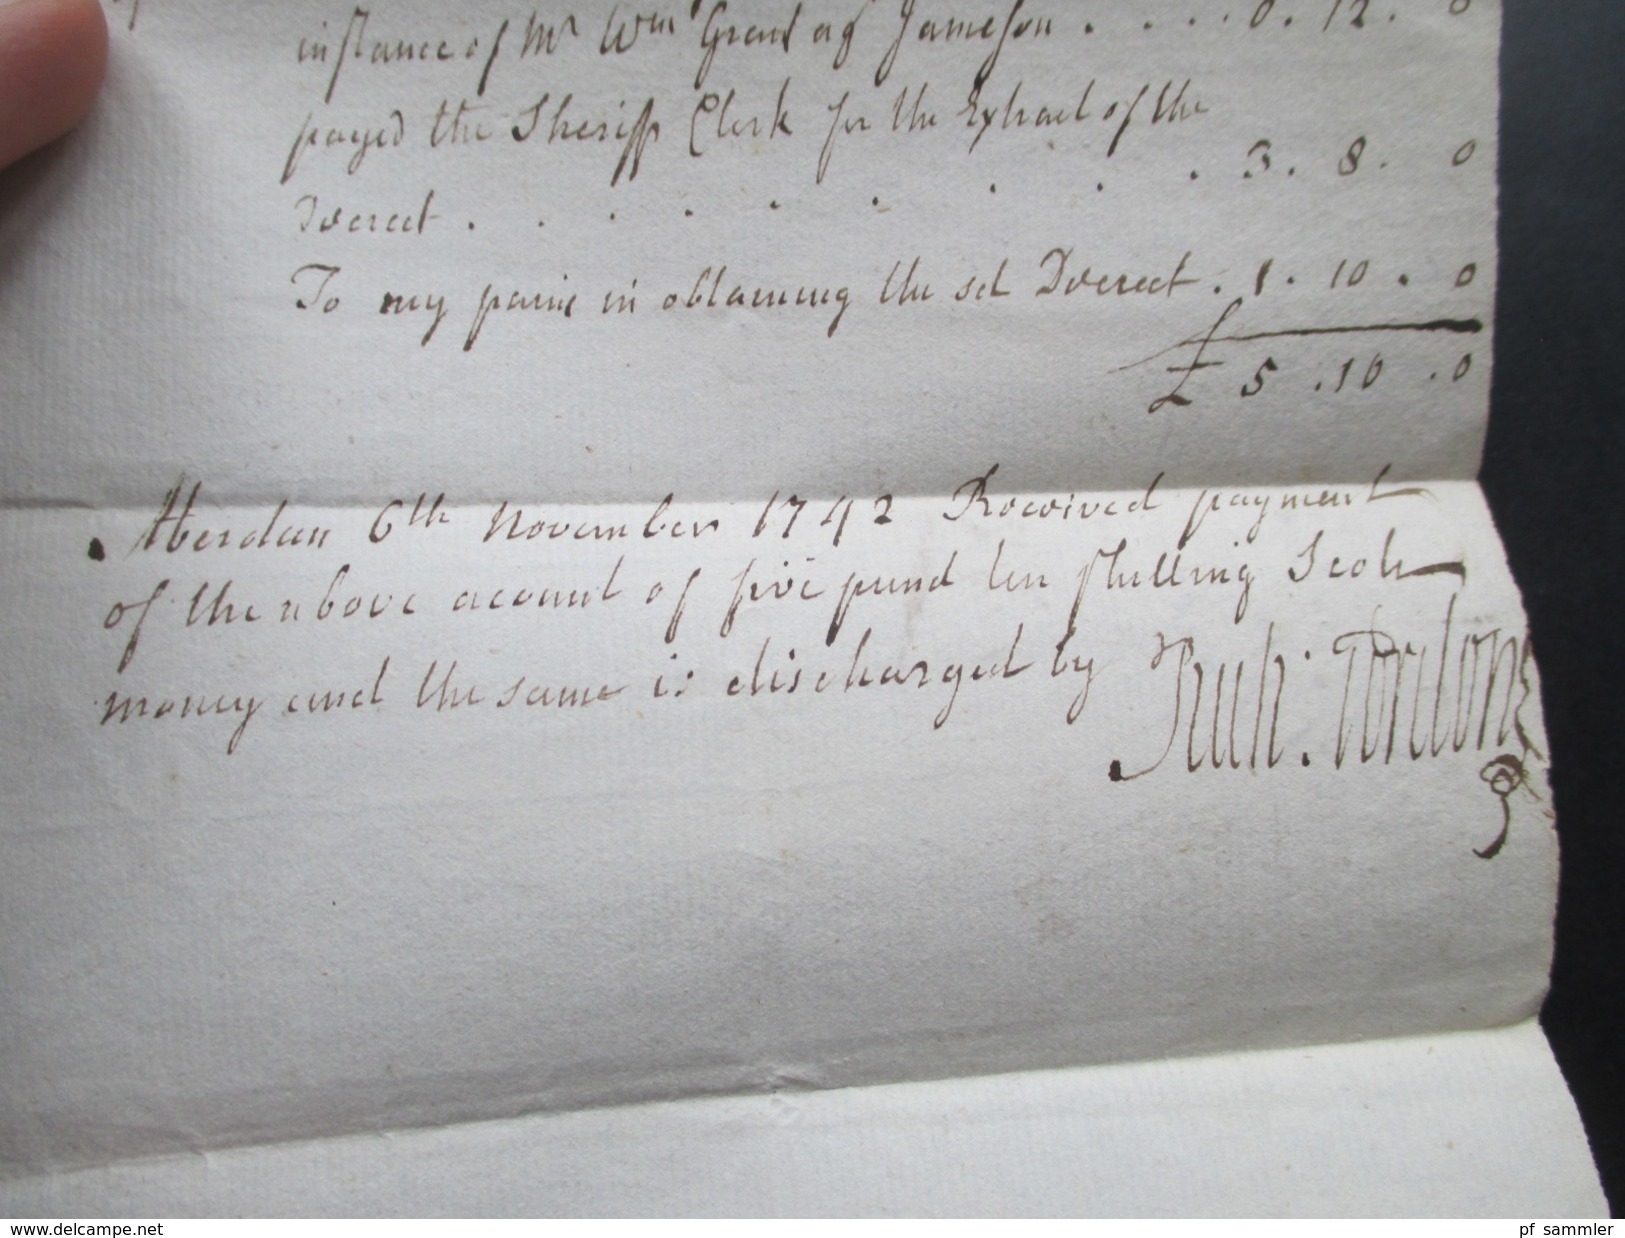 instance of Mr Wm Grant agt Jameson . . . . 0 . 12 . 0
payed the Sheriff Clerk for the Extract of the
Decreet . . . . . . . . 3 . 8 . 0
To my pains in obtaining the sd Decreet . 1 . 10 . 0
£ 5 . 10 . 0
Aberdein 6th November 1742 Received payment
of the above acount of five pund ten shilling Scots
money and the same is discharged by
Gordon
www.delcampe.net
pf_sammler